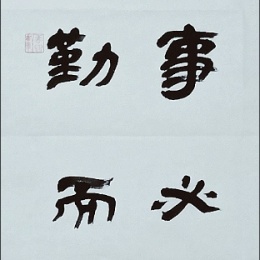 事必
勤而